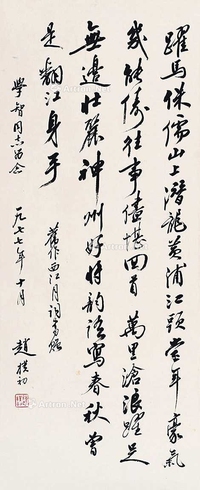 躍馬侏儒山上潛龍黃浦江頭當年豪氣
幾能儔往事儘堪回首 萬里滄浪濯足
無邊壯麗神州好將韵語寫春秋曾
是翻江身手
舊作西江月詞書貽
學智同志留念
一九七七年十月
趙樸初